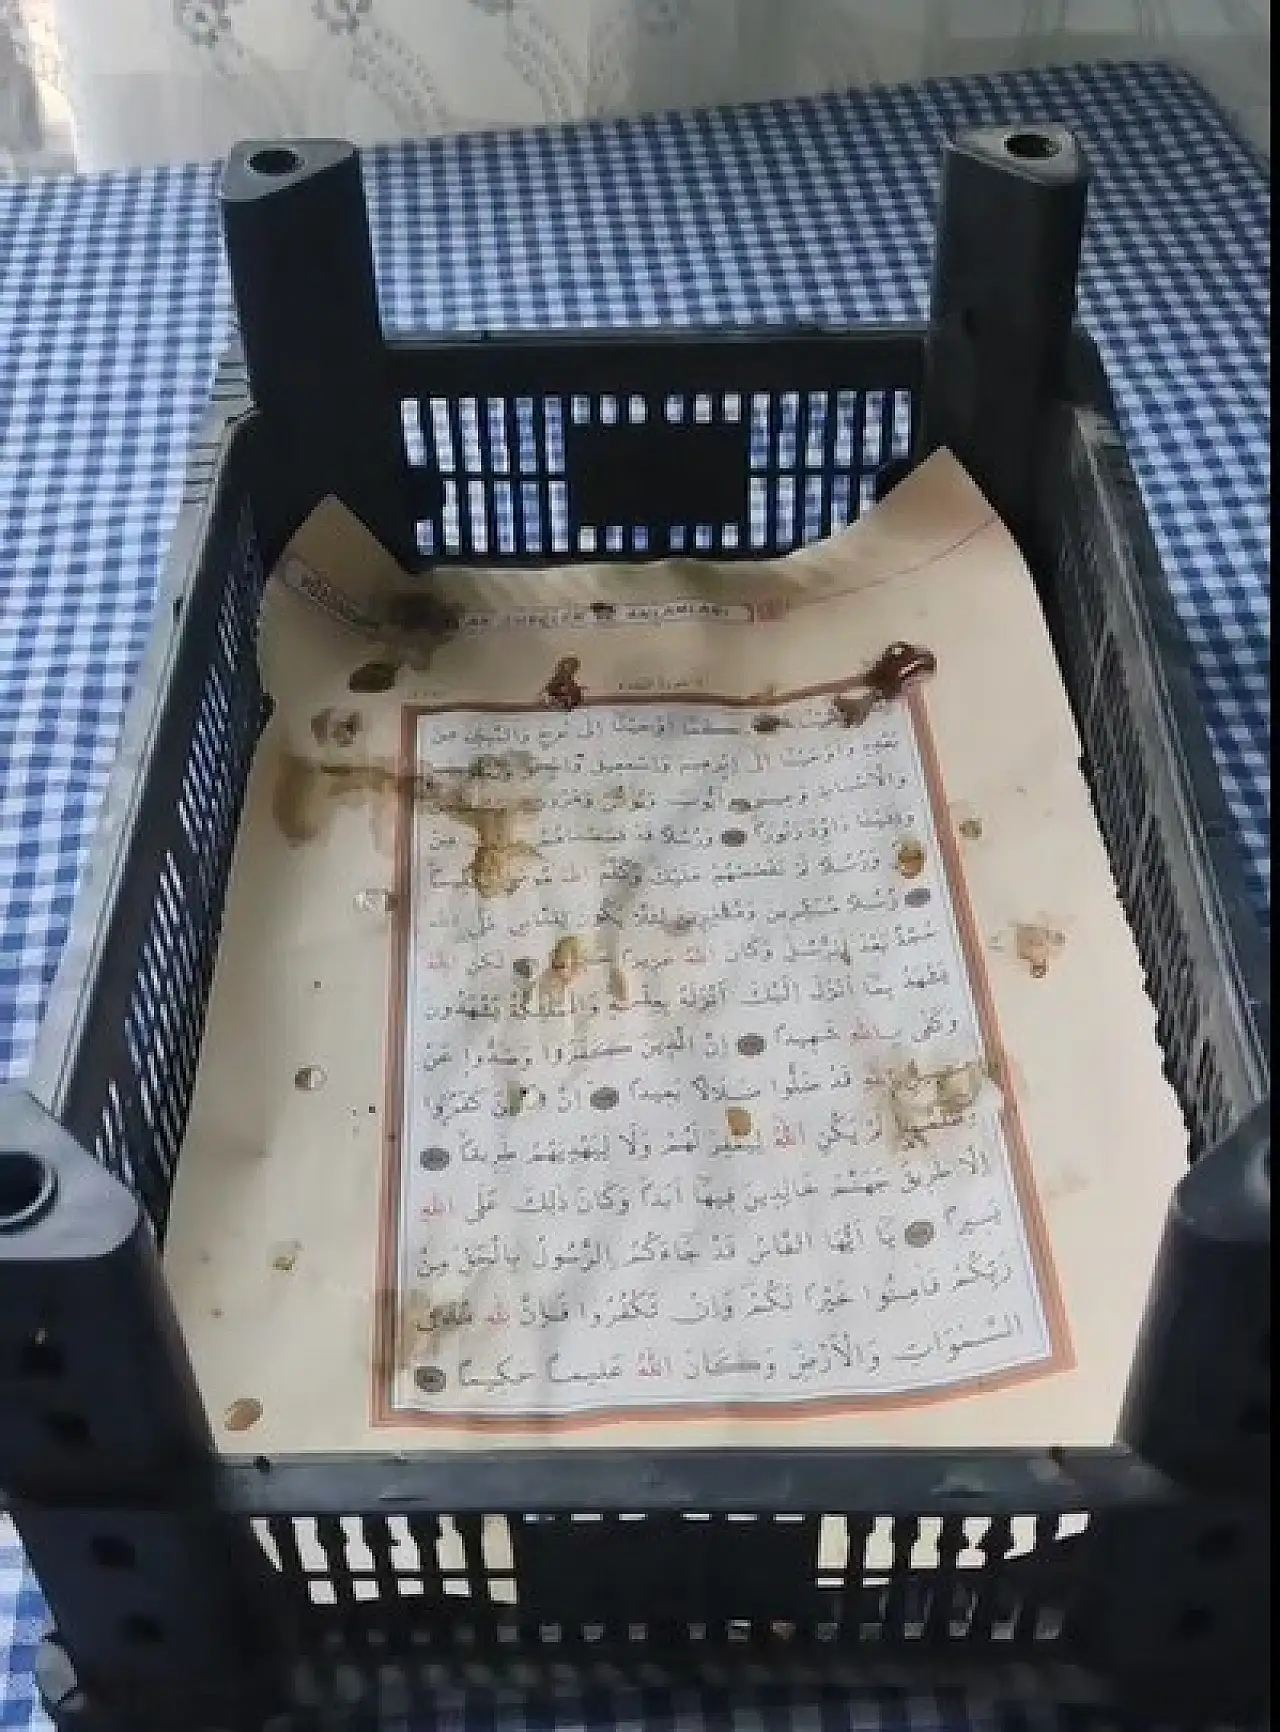 ANLAMLARI
كَمَٓا اَوْحَيْنَٓا اِلٰى نُوحٍ وَالنَّبِيّٖنَ مِنْ
بَعْدِهٖ وَاَوْحَيْنَٓا اِلٰٓى اِبْرٰهٖيمَ وَاِسْمٰعٖيلَ وَاِسْحٰقَ
وَالْاَسْبَاطِ وَعٖيسٰى وَاَيُّوبَ وَيُونُسَ وَهٰرُونَ
وَاٰتَيْنَا دَاوُ۫دَ زَبُورًا وَرُسُلًا قَدْ مِنْ
وَرُسُلًا لَمْ نَقْصُصْهُمْ عَلَيْكَ وَكَلَّمَ اللّٰهُ مُوسٰى
رُسُلًا مُبَشِّرٖينَ وَمُنْذِرٖينَ لِئَلَّا يَكُونَ لِلنَّاسِ عَلَى اللّٰهِ
حُجَّةٌ بَعْدَ الرُّسُلِ وَكَانَ اللّٰهُ عَزٖيزًا لٰكِنِ اللّٰهُ
يَشْهَدُ بِمَٓا اَنْزَلَ اِلَيْكَ اَنْزَلَهُ بِعِلْمِهٖ وَالْمَلٰٓئِكَةُ يَشْهَدُونَ
وَكَفٰى بِاللّٰهِ شَهٖيدًا اِنَّ الَّذٖينَ كَفَرُوا وَصَدُّوا عَنْ
اللّٰهِ قَدْ ضَلُّوا ضَلَالًا بَعٖيدًا اِنَّ الَّذٖينَ كَفَرُوا
وَظَلَمُوا لَمْ يَكُنِ اللّٰهُ لِيَغْفِرَ لَهُمْ وَلَا لِيَهْدِيَهُمْ طَرٖيقًا
اِلَّا طَرٖيقَ جَهَنَّمَ خَالِدٖينَ فٖيهَٓا اَبَدًا وَكَانَ ذٰلِكَ عَلَى اللّٰهِ
يَسٖيرًا يَٓا اَيُّهَا النَّاسُ قَدْ جَٓاءَكُمُ الرَّسُولُ بِالْحَقِّ مِنْ
رَبِّكُمْ فَاٰمِنُوا خَيْرًا لَكُمْ وَاِنْ تَكْفُرُوا فَاِنَّ لِلّٰهِ مَا فِي
السَّمٰوَاتِ وَالْاَرْضِ وَكَانَ اللّٰهُ عَلٖيمًا حَكٖيمًا